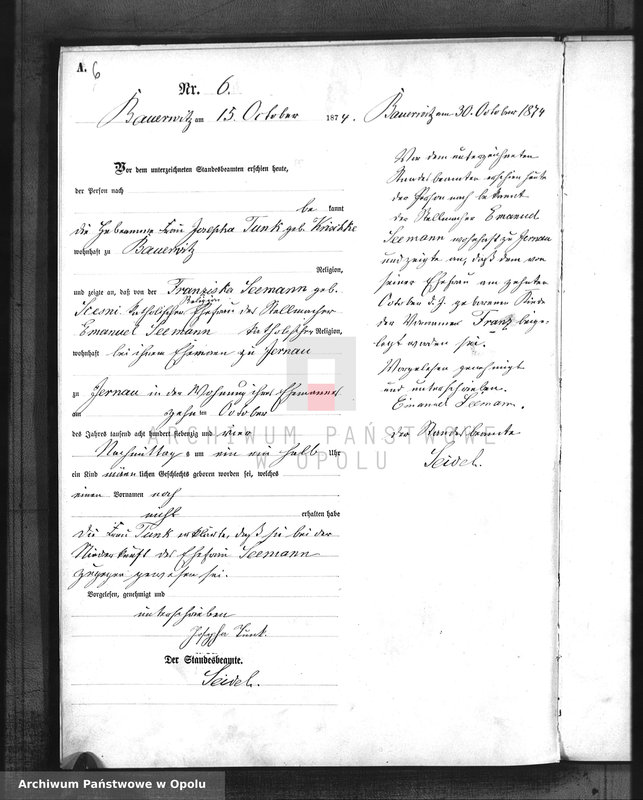 A. 6
Nr. 6.
Bauerwitz am 15. October 1874.
Vor dem unterzeichneten Standesbeamten erschien heute,
der Person nach
be kannt
die Hebeamme Frau Josepha Tunk geb.
wohnhaft zu Bauerwitz
Religion,
und zeigte an, daß von der Franziska Seemann geb.
Religion
katholischen Ehefrau des Stellmacher
Emanuel Seemann katholischer Religion,
wohnhaft bei ihrem Ehemann zu Zernau
zu Zernau in der Wohnung ihres Ehemannes
am zehn ten October
des Jahres tausend acht hundert siebenzig und vier
Nachmittags um ein ein halb Uhr
ein Kind männ lichen Geschlechts geboren worden sei, welches
einen Vornamen noch
nicht erhalten habe
Die Frau Tunk erklärte, daß sie bei der
Niederkunft der Ehefrau Seemann
zugegen gewesen sei.
Vorgelesen, genehmigt und
unterschrieben
Josepha Tunk.
Der Standesbeamte.
Seidel.
Bauerwitz am 30. October 1874
Vor dem unterzeichneten
Standesbeamten erschien heute
der Person nach bekannt
der Stellmacher Emanuel
Seemann wohnhaft zu Zernau
und zeigte an, daß dem von
seiner Ehefrau am zehnten
October d. J. geborenen Kinde
der Vornamen Franz beige-
legt worden sei.
Vorgelesen genehmigt
und unterschrieben.
Emanuel Seemann.
der Standesbeamte
Seidel.
ARCHIWUM PAŃSTWOWE
W OPOLU
Archiwum Państwowe w Opolu